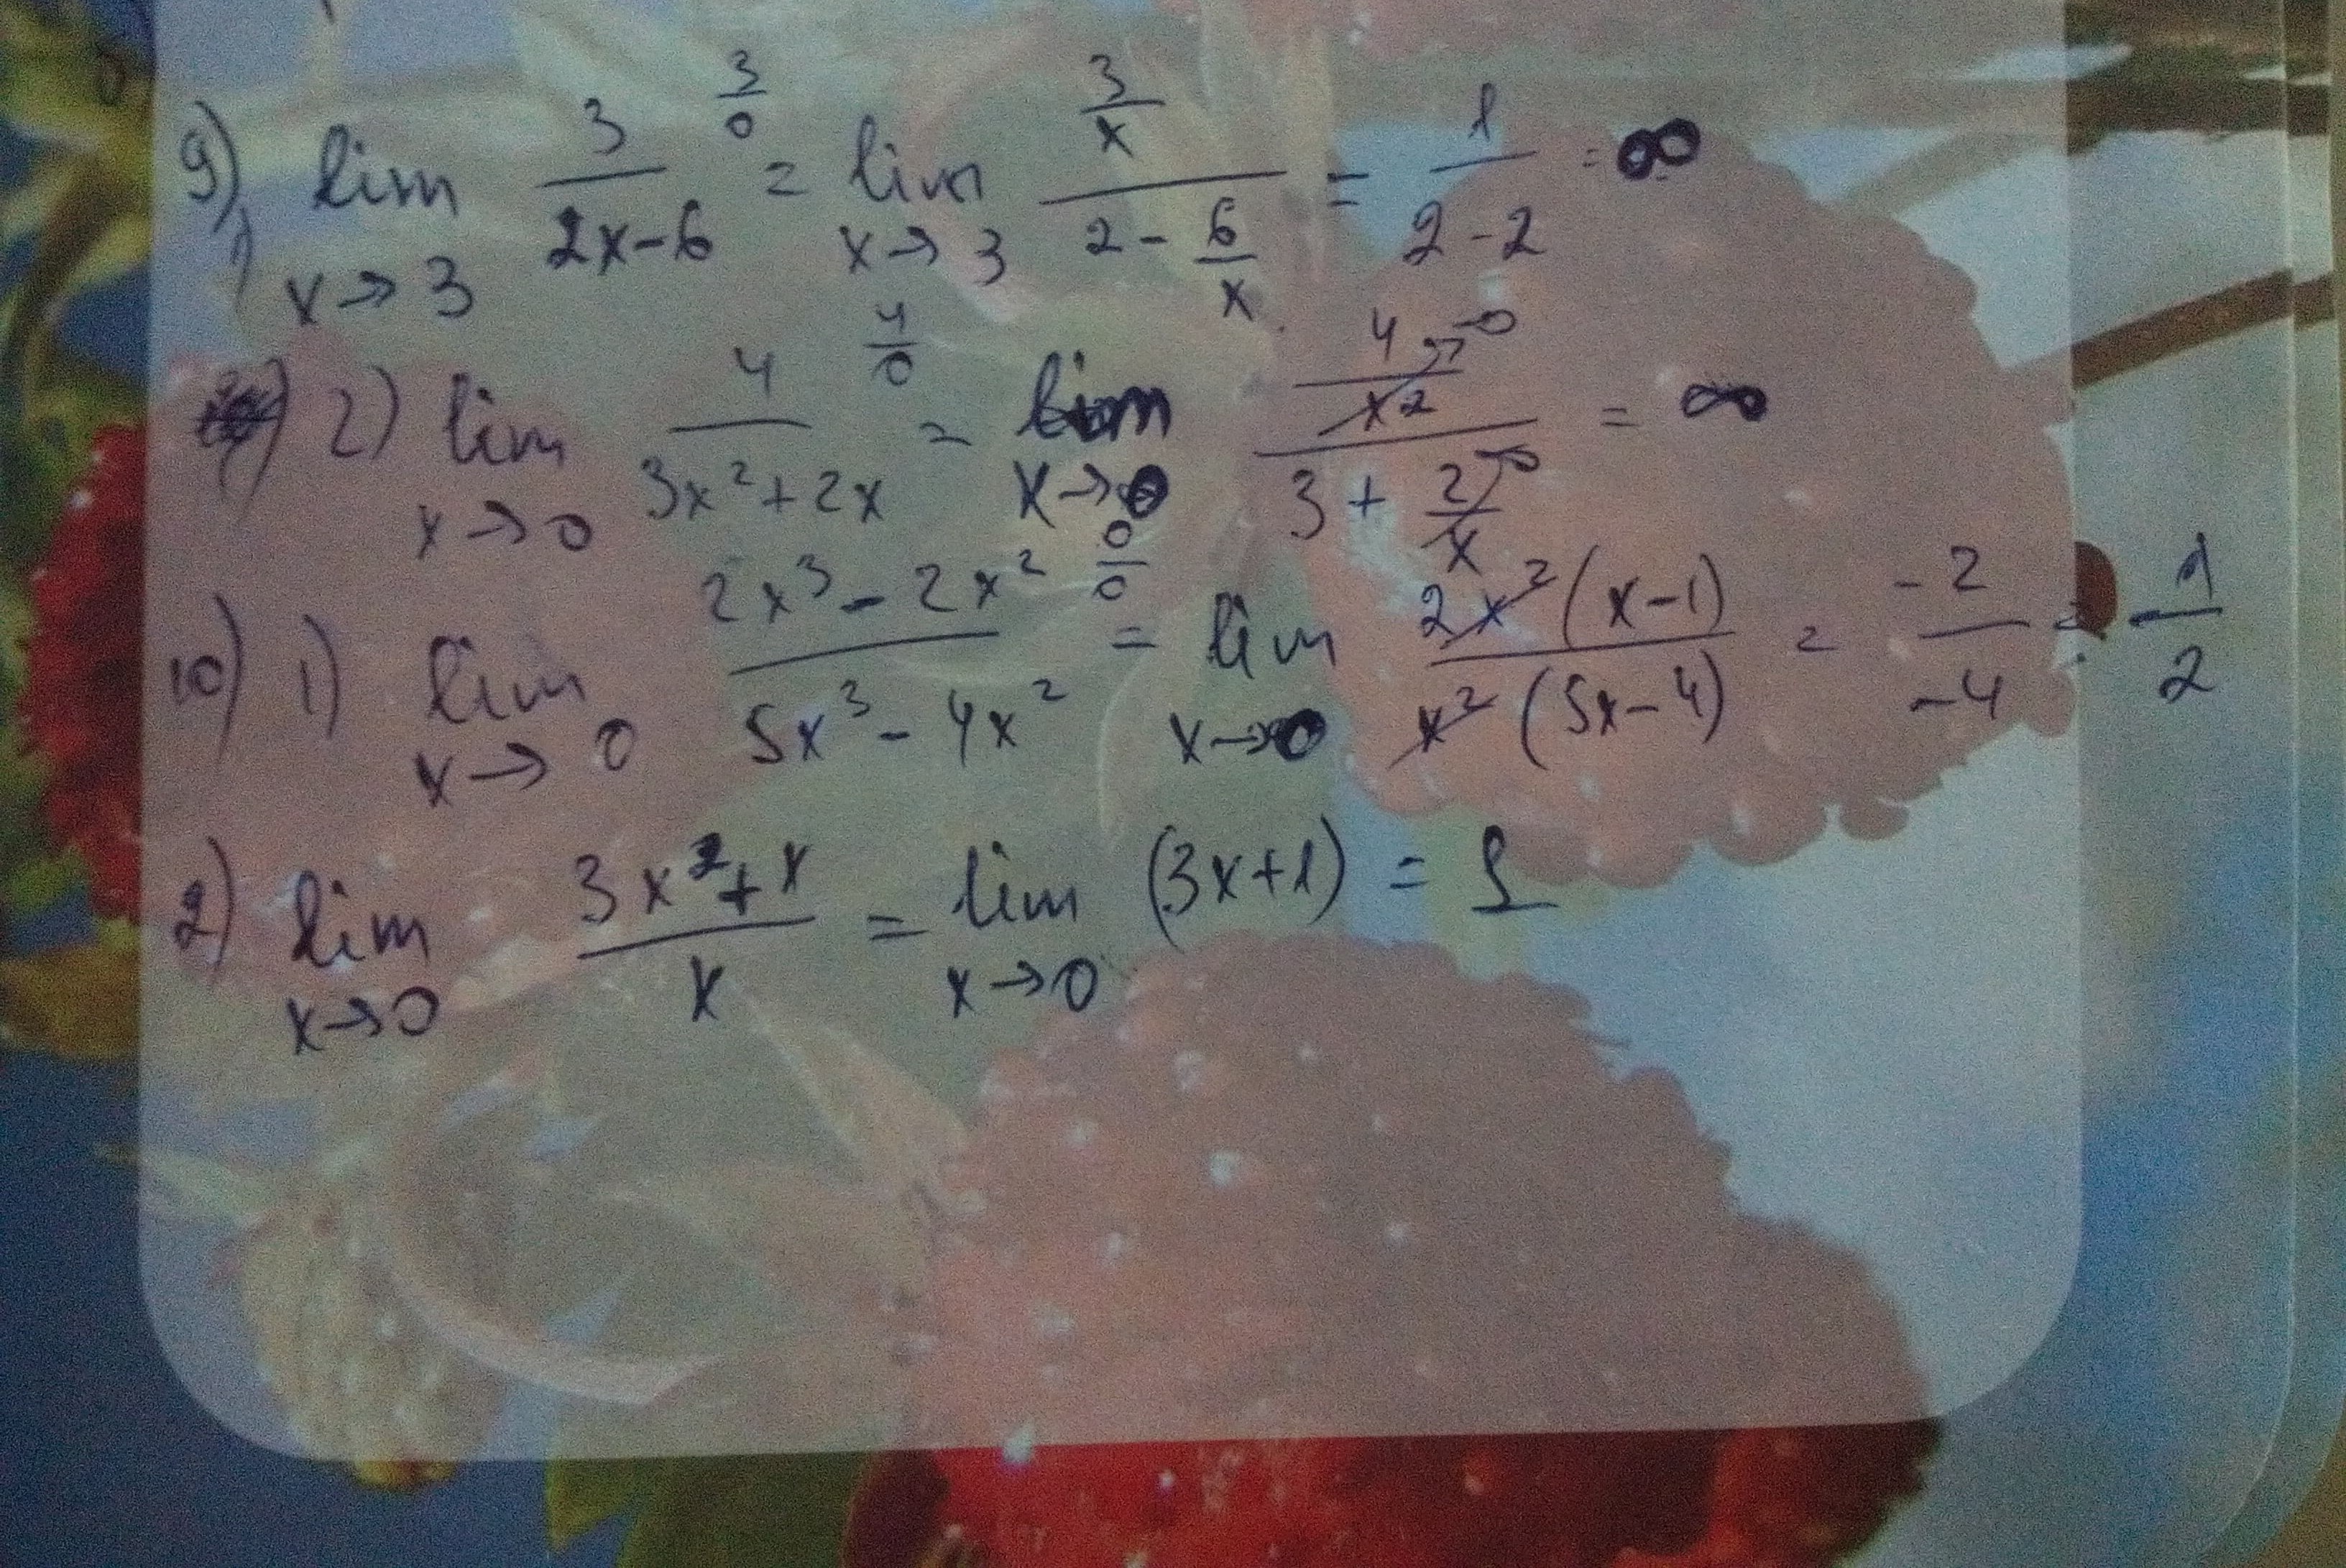 9) 1) lim x→3 3/(2x-6) 3/0 = lim x→3 (3/x)/(2 - 6/x) = 1/(2-2) = ∞
2) lim x→0 4/(3x²+2x) 4/0 = lim x→0 (4/x² →0)/(3 + 2/x →0) = ∞
10) 1) lim x→0 (2x³-2x²)/(5x³-4x²) 0/0 = lim x→0 2x²(x-1)/x²(5x-4) = -2/-4 = 1/2
2) lim x→0 (3x²+x)/x = lim x→0 (3x+1) = 1